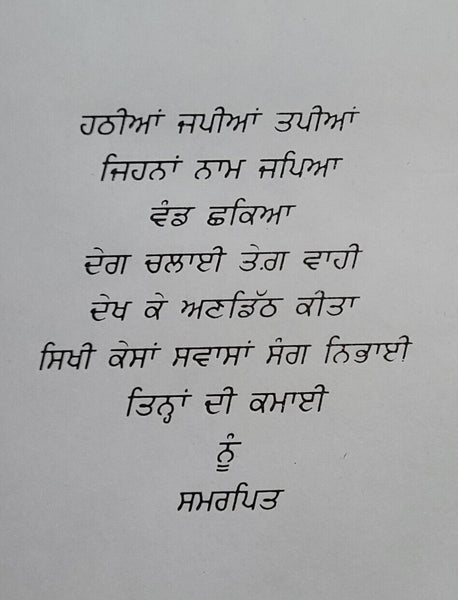 ਹਠੀਆਂ ਜਪੀਆਂ ਤਪੀਆਂ
ਜਿਹਨਾਂ ਨਾਮ ਜਪਿਆ
ਵੰਡ ਛਕਿਆ
ਦੇਗ ਚਲਾਈ ਤੇਗ਼ ਵਾਹੀ
ਦੇਖ ਕੇ ਅਣਡਿੱਠ ਕੀਤਾ
ਸਿਖੀ ਕੇਸਾਂ ਸਵਾਸਾਂ ਸੰਗ ਨਿਭਾਈ
ਤਿਨ੍ਹਾਂ ਦੀ ਕਮਾਈ
ਨੂੰ
ਸਮਰਪਿਤ